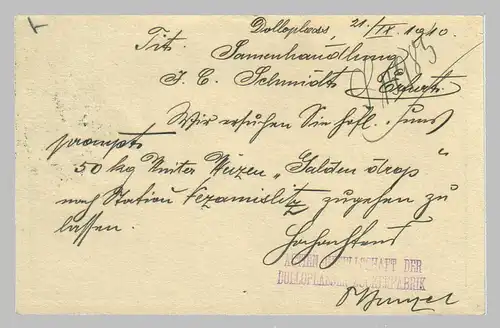 Dolloplass, 21./IX. 1910.
Tit.
Samenhandlung
J. C. Schmidt Erfurt.
Wir ersuchen Sie höfl. uns
prompt
50 kg Winter Weizen „Galden drop"
nach Station Nezamislitz zugehen zu
lassen.
Hochachtend
ACTIEN GESELLSCHAFT DER
DOLLOPLASSER ZUCKERFABRIK